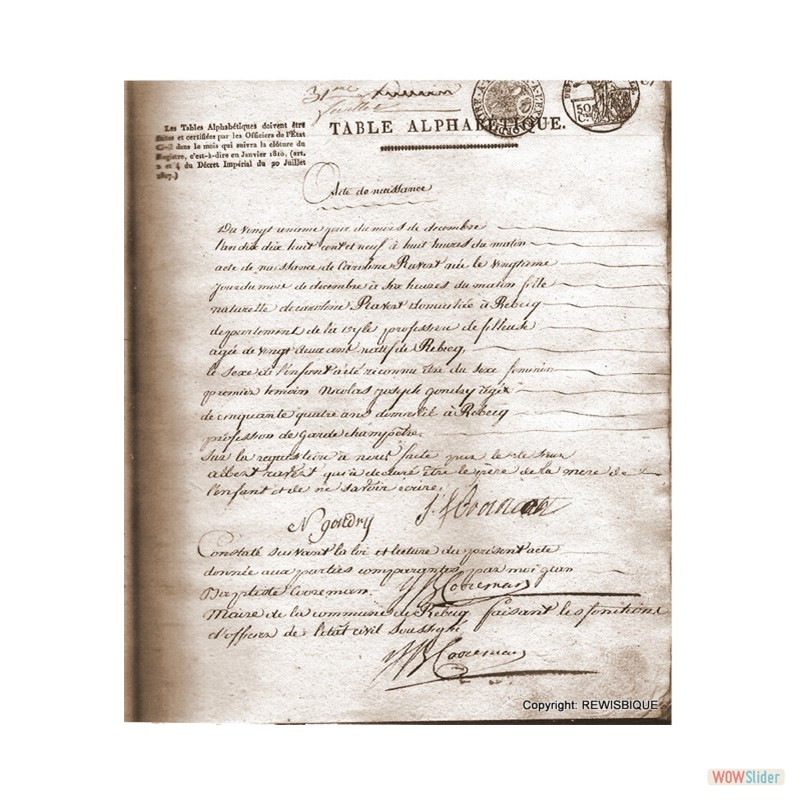 31me
juillet
TABLE ALPHABÉTIQUE.
Les Tables Alphabétiques doivent être
faites et certifiées par les Officiers de l'État
Civil dans le mois qui suivra la clôture du
Registre, c'est-à-dire en Janvier 1810, (art.
2 et 4 du Décret Impérial du 20 Juillet
1807.)
50
Cs
Acte de naissance
Du vingt unieme jour du mois de decembre
l'an dix huit cent et neuf à huit heures du matin
acte de naissance de Caroline Ravert née le vingtieme
jour du mois de decembre à six heures du matin fille
naturelle de caroline Ravert domiciliée à Rebecq
departement de la dyle profession de fileuse
agée de vingt deux ans natif de Rebecq,
le sexe de l'enfant à été reconnu être du sexe feminin
premier temoin Nicolas joseph gondry agé
de cinquante quatre ans domicilé à Rebecq
profession de garde champetre.
Sur la requisition à nous faite par le
albert ravert qui à declaré être le père de la mere de
l'enfant et de ne savoir ecrire,
N gondry
Constaté suivant la loi et lecture du présent acte
donnée aux parties comparantes par moi jean
Baptiste Cooreman JB Cooreman
Maire de la commune de Rebecq faisant les fonctions
d'officier de l'etat civil soussigné
JB Cooreman
Copyright: REWISBIQUE
WOWSlider